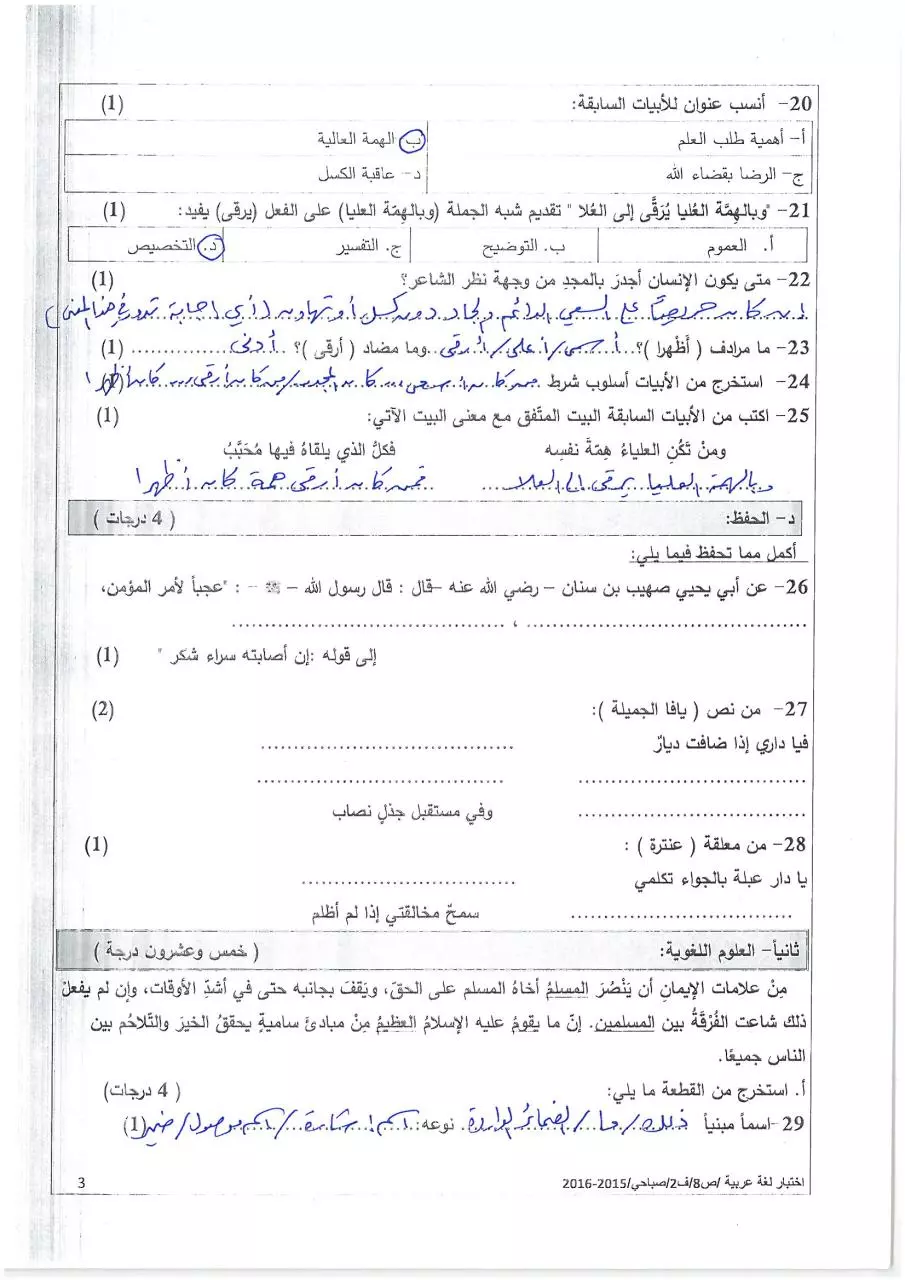 20- أنسب عنوان للأبيات السابقة: (1)
أ- أهمية طلب العلم ب- الهمة العالية
ج- الرضا بقضاء الله د- عاقبة الكسل
21- "وبالهِمَّة العُليا يُرَقَّى إلى العُلا " تقديم شبه الجملة (وبالهِمّة العليا) على الفعل (يرقى) يفيد: (1)
أ. العموم ب. التوضيح ج. التفسير د. التخصيص
22- متى يكون الإنسان أجدرَ بالمجدِ من وجهة نظر الشاعر؟ (1)
إن كان حريصاً على السعي الدائم والجاد دون كسل أو تهاون (أي إجابة تدور في هذا المعنى)
23- ما مرادف ( أظْهرا )؟.. أسمى/أعلى/أرقى..وما مضاد ( أرقى )؟ ..أدنى............... (1)
24- استخرج من الأبيات أسلوب شرط فمن كان أسعى ... كان بالمجد/من كان أرقى ... كان أظهرا (1)
25- اكتب من الأبيات السابقة البيت المتّفق مع معنى البيت الآتي: (1)
ومنْ تَكُنِ العلياءُ هِمّةَ نفسِه فكلُّ الذي يلقاهُ فيها مُحَبَّبُ
وبالهمة العليا يرقى إلى العلا فمن كان أرقى همة كان أظهرا
د- الحفظ: ( 4 درجات )
أكمل مما تحفظ فيما يلي:
26- عن أبي يحيي صهيب بن سنان - رضي الله عنه -قال : قال رسول الله - ﷺ - : "عجباً لأمر المؤمن،
.......................................... ، .........................................
إلى قوله :إن أصابته سراء شكر " (1)
27- من نص ( يافا الجميلة ): (2)
فيا داري إذا ضاقت ديارٌ ......................................
.................................. .....................................
.................................. وفي مستقبل جذلٍ نصاب
28- من معلقة ( عنترة ) : (1)
يا دار عبلة بالجواء تكلمي ................................
................................. سمحٌ مخالقتي إذا لم أظلم
ثانياً- العلوم اللغوية: ( خمس وعشرون درجة )
مِنْ علامات الإيمانِ أن يَنْصُرَ المسلمُ أخاهُ المسلم على الحقّ، ويَقفَ بجانبه حتى في أشدِّ الأوقات، وإن لم يفعلْ
ذلك شاعت الفُرْقَةُ بين المسلمين. إنّ ما يقومُ عليه الإسلامُ العظيمُ مِنْ مبادئَ ساميةٍ يحققُ الخيرَ والتّلاحُم بين
الناس جميعًا.
أ. استخرج من القطعة ما يلي: ( 4 درجات)
29-اسماً مبنياً ذلك/ما/الضمائر الواردة. نوعه: اسم إشارة/اسم موصول/ضمير(1)
اختبار لغة عربية /ص8/ف2/صباحي/2015-2016 3